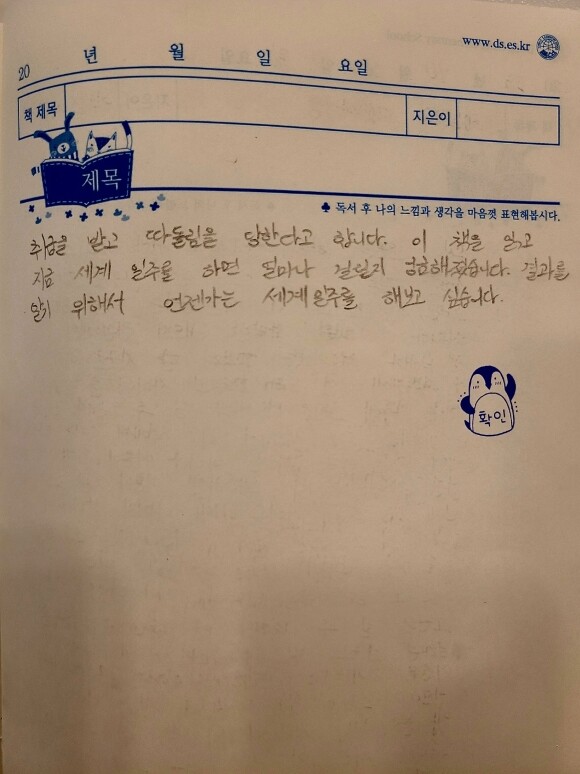 www.ds.es.kr
20 년 월 일 요일
책 제목 지은이
제목
♣ 독서 후 나의 느낌과 생각을 마음껏 표현해봅시다.
취급을 받고 따돌림을 당한다고 합니다. 이 책을 읽고
지금 세계 일주를 하면 얼마나 걸릴지 궁금해졌습니다. 결과를
알기 위해서 언젠가는 세계일주를 해보고 싶습니다.
확인